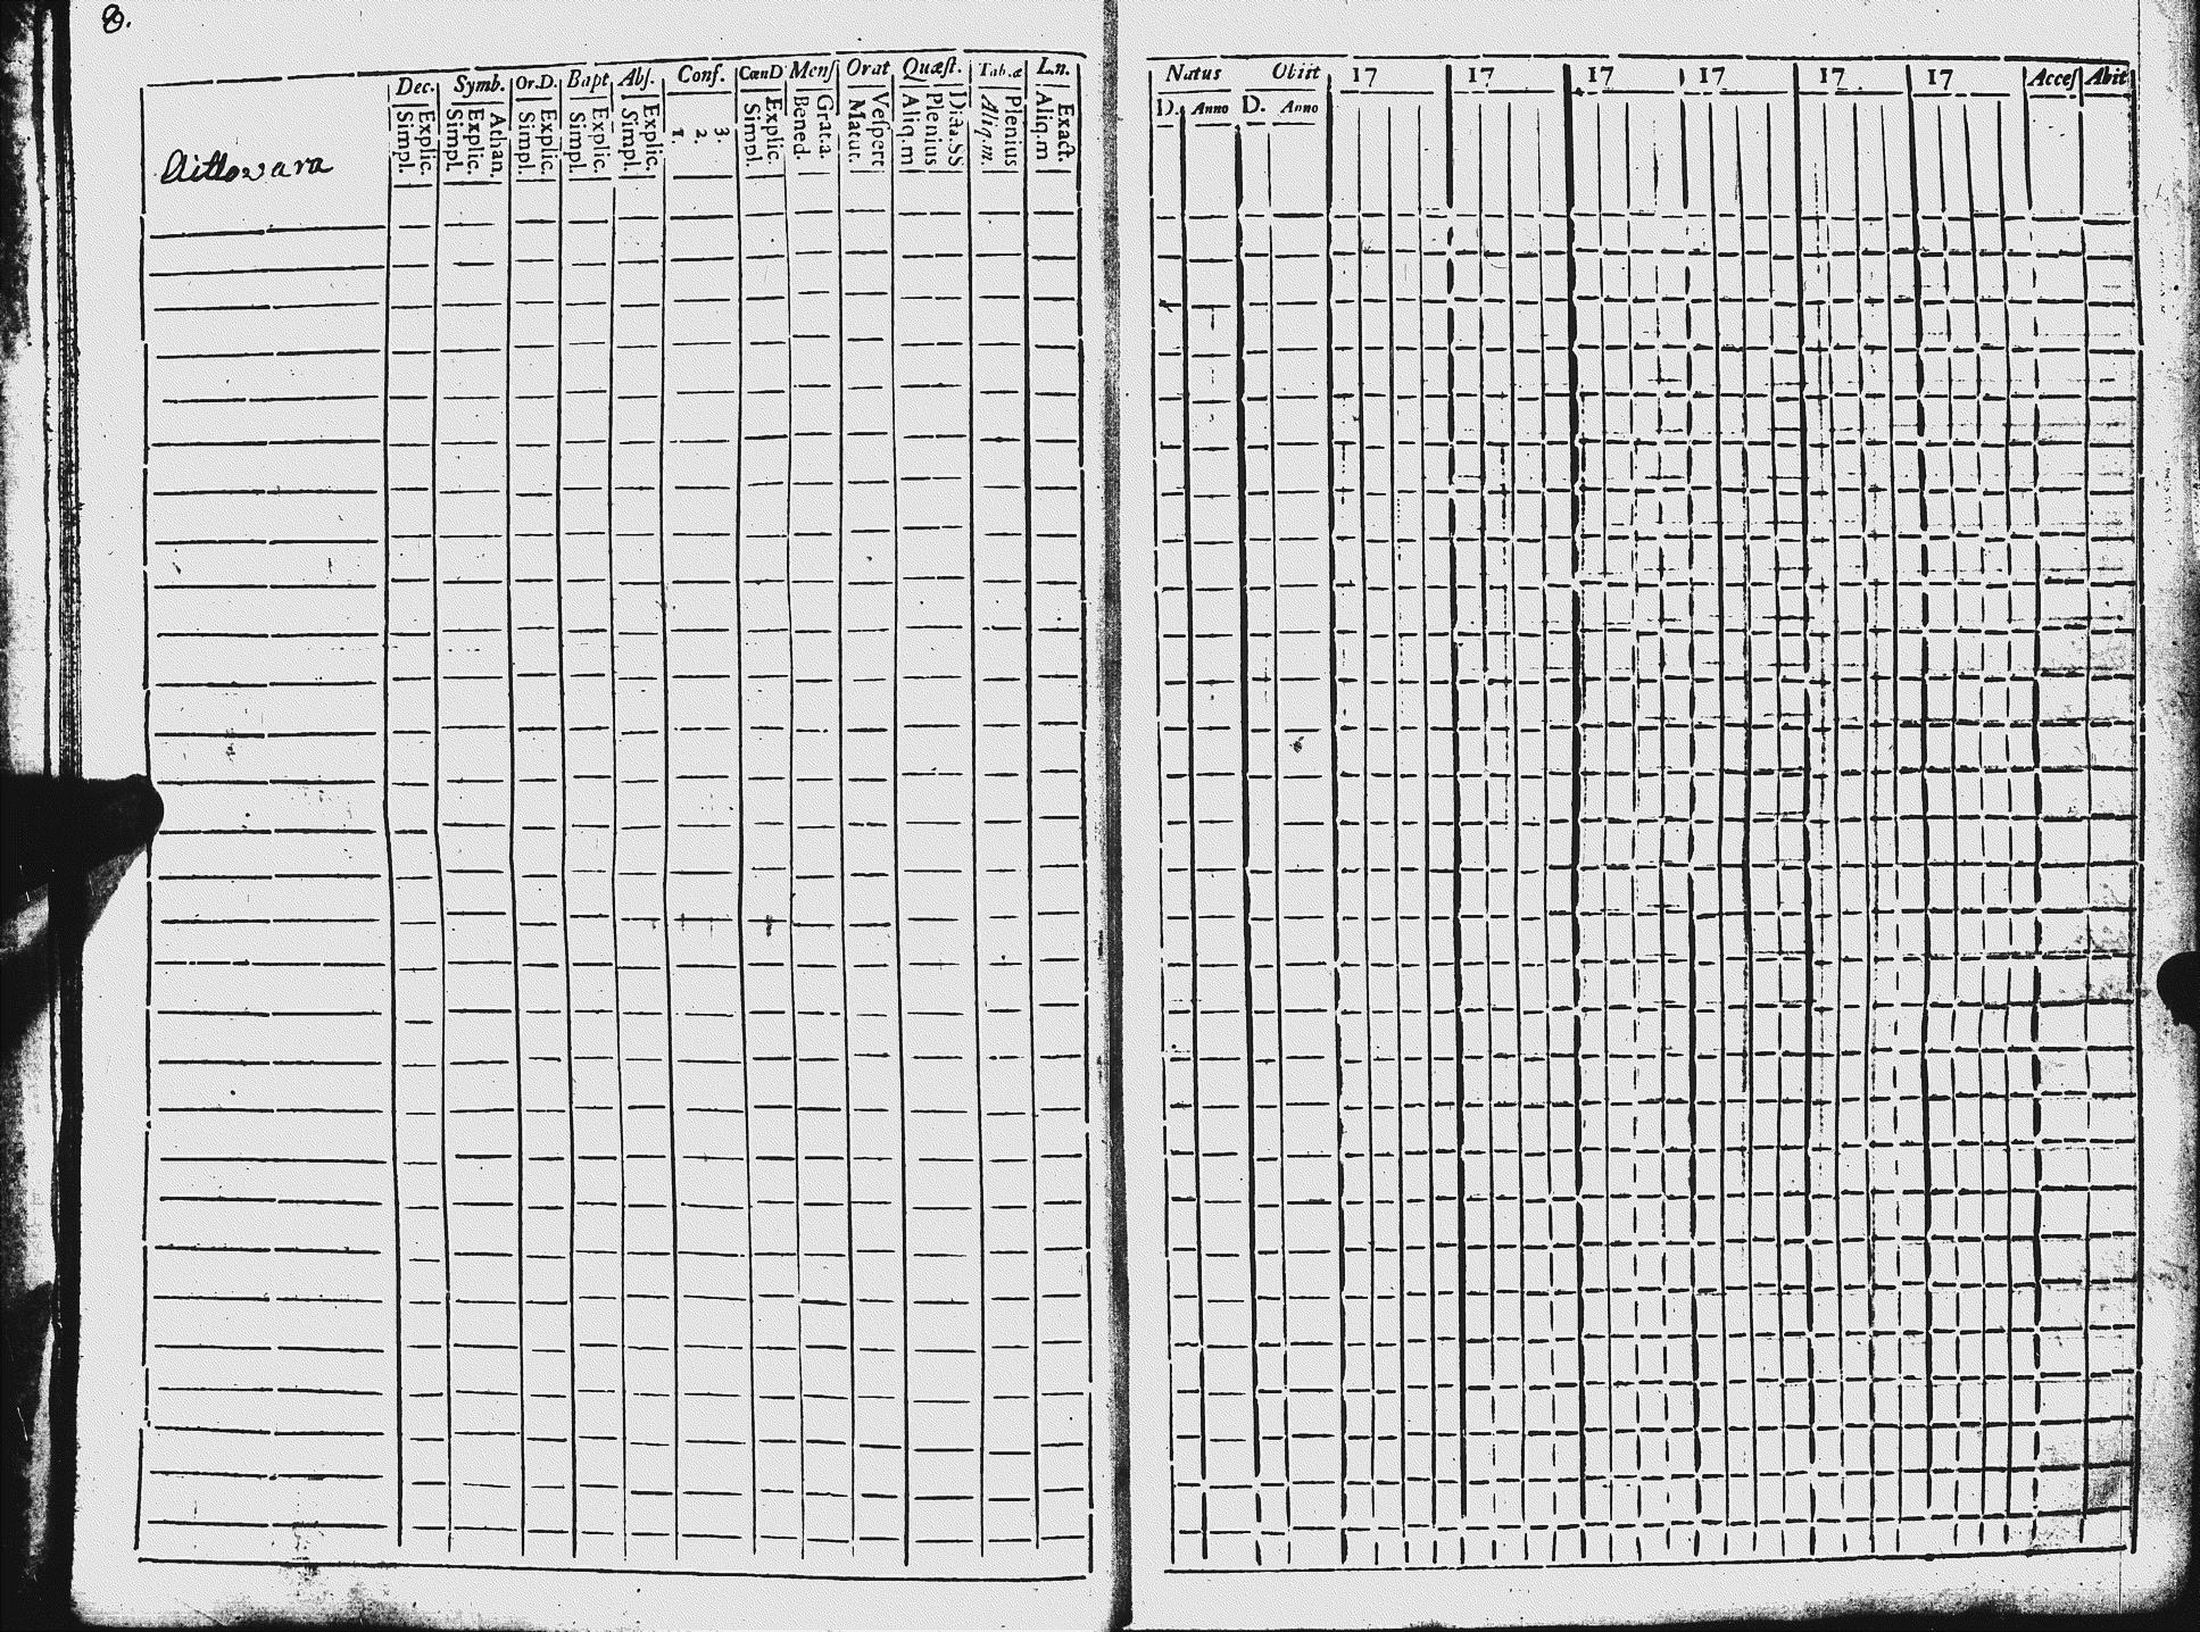 8.
Dec. Symb. Or.D. Bapt Abſ. Conf. CœnD Menſ Orat Quæſt. Tab.œ L.n.
Explic. Simpl. Athan. Explic. Simpl. Explic. Simpl. Explic. Simpl. Explic. Simpl. 3. 2. 1. Explic. Simpl. Grat.a. Bened. Veſpert Matut. Dicta.SS Plenius Aliq.m Plenius Aliq.m. Exact. Aliq.m
Aittowara
Natus Obiit 17 17 17 17 17 17 Acceſ Abit
D. Anno D. Anno